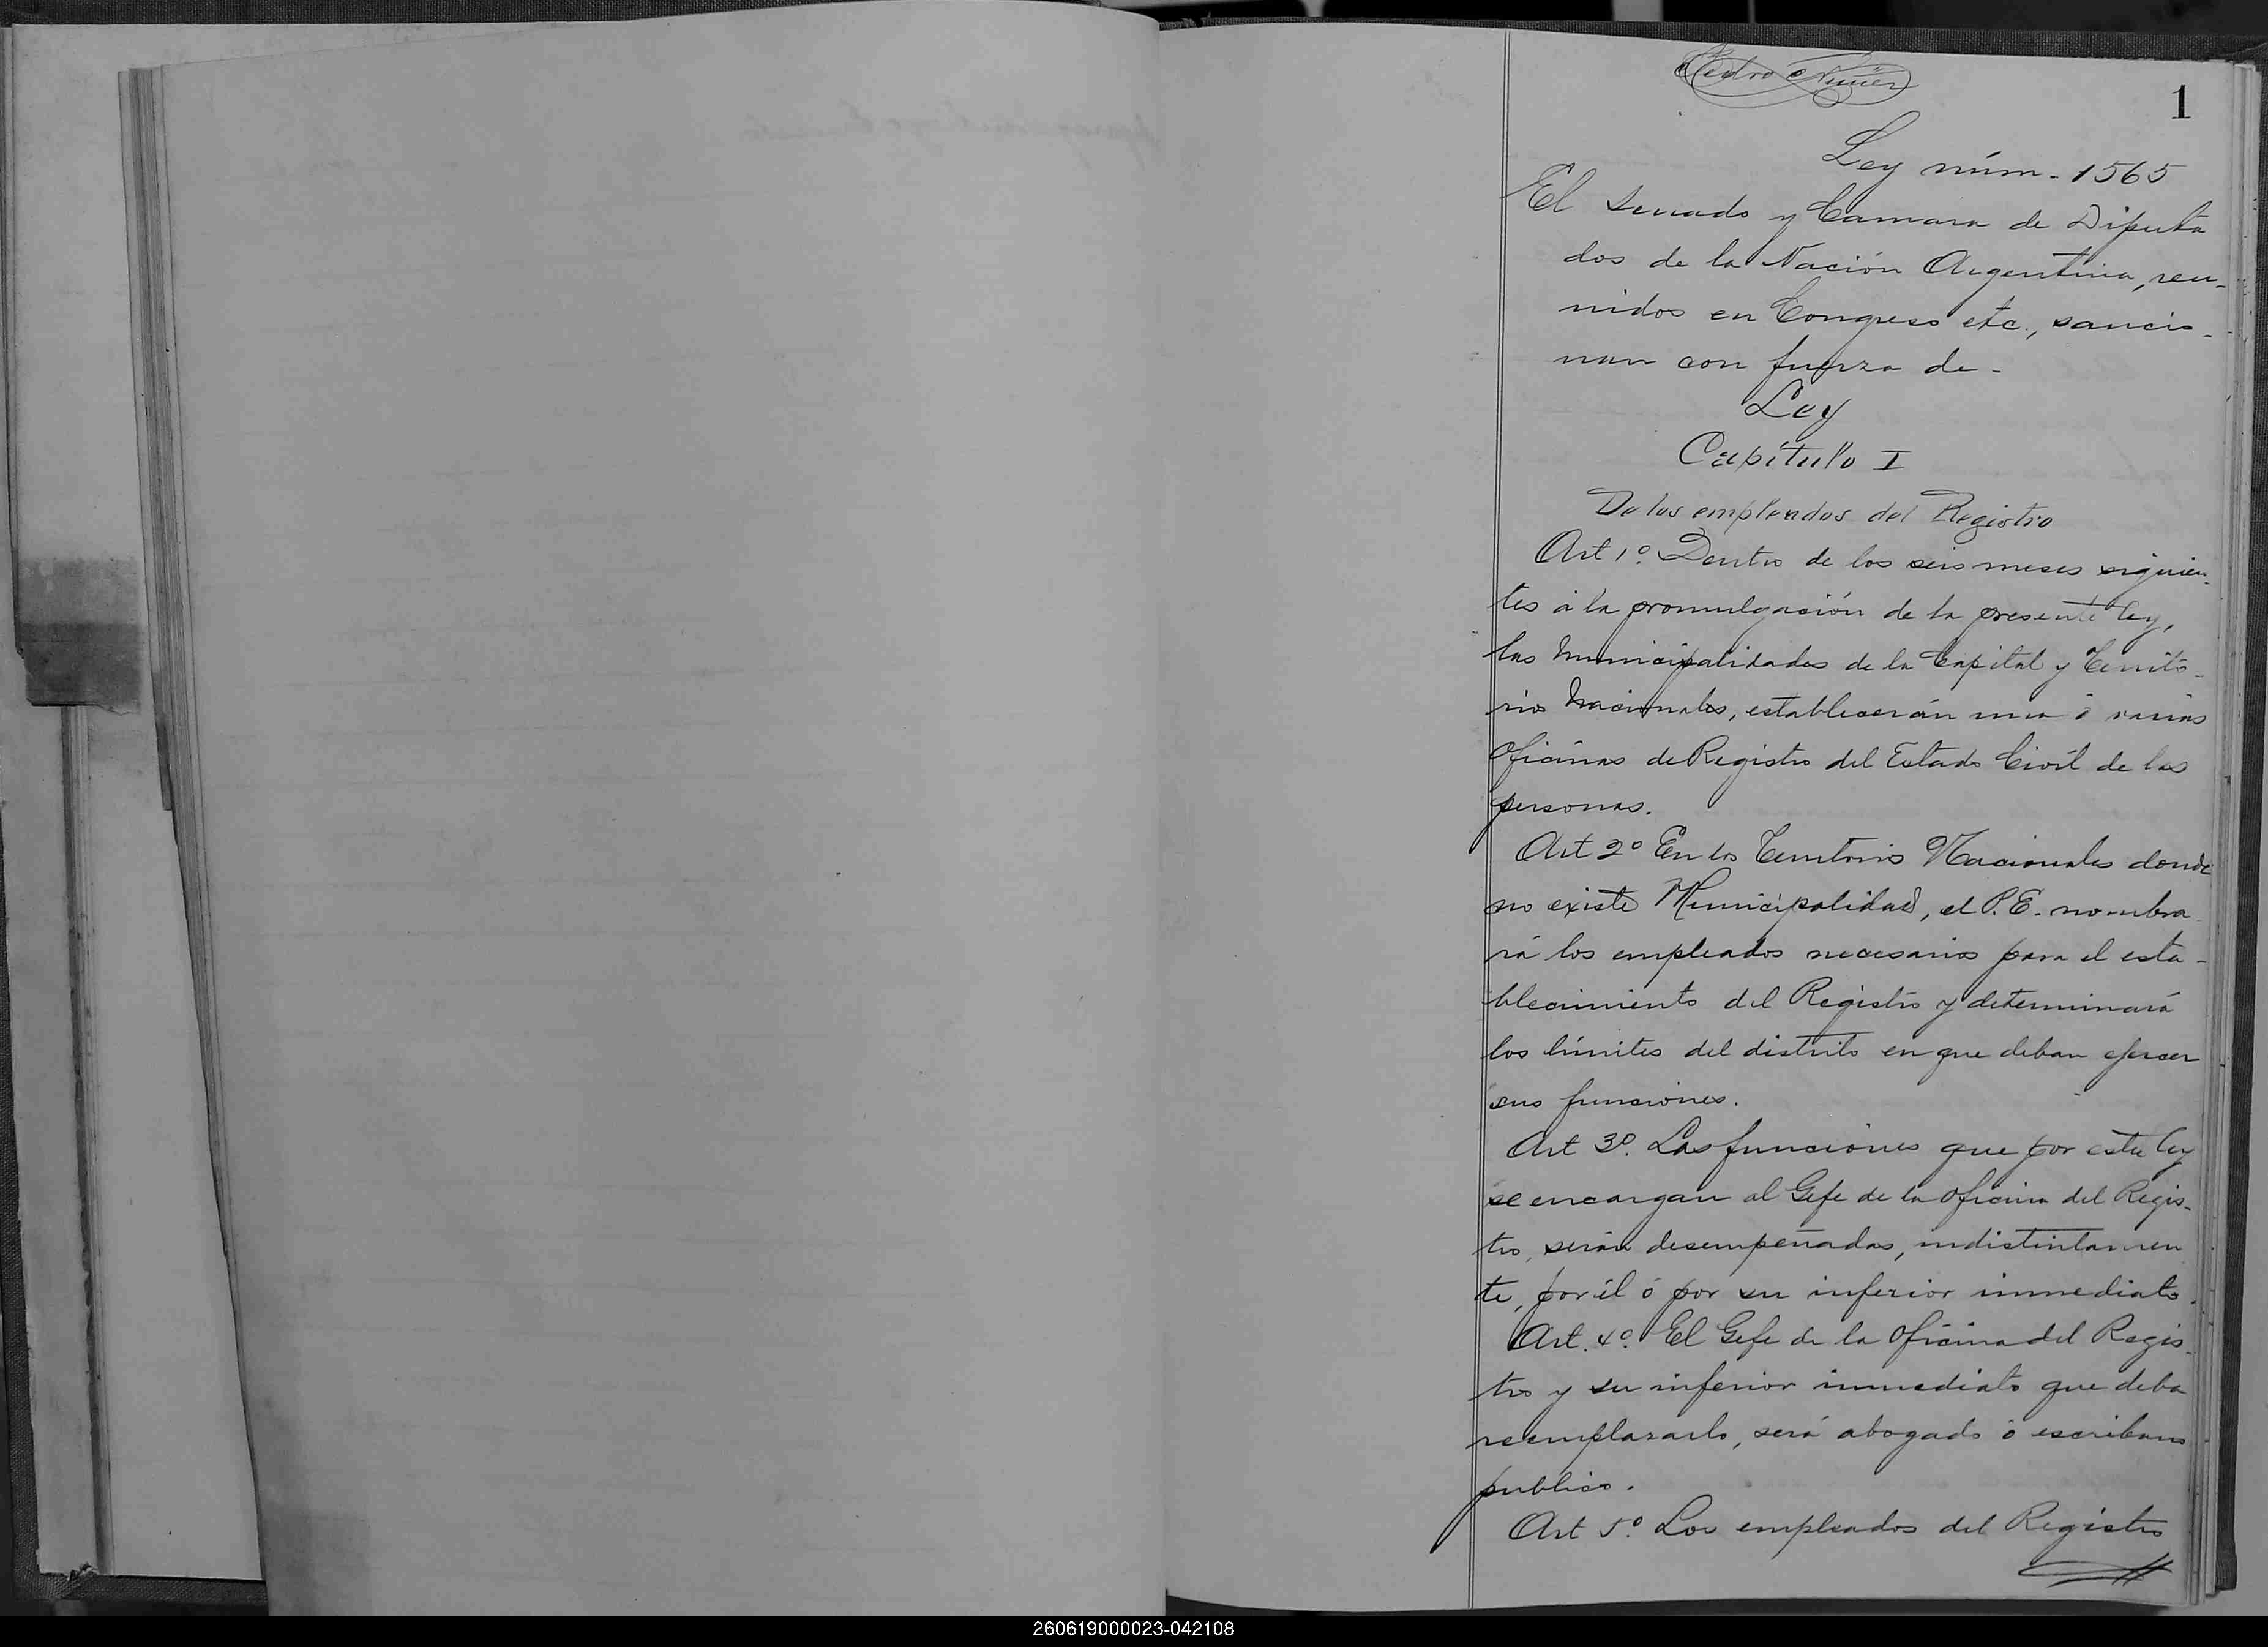 Pedro Nuñez
1
Ley núm. 1565
El Senado y Camara de Diputa
dos de la Nación Argentina, reu-
nidos en Congreso etc., sancio-
nan con fuerza de-
Ley
Capítulo I
De los empleados del Registro
Art 1º. Dentro de los seis meses siguien-
tes á la promulgación de la presente ley,
las Municipalidades de la Capital y Territo-
rios Nacionales, establecerán una ó varias
Oficinas de Registro del Estado Civil de las
personas.
Art 2º En los Territorios Nacionales donde
no existe Municipalidad, el P.E. nombra-
rá los empleados necesarios para el esta-
blecimiento del Registro y determinará
los límites del distrito en que deban ejercer
sus funciones.
Art 3º. Las funciones que por esta ley
se encargan al Gefe de la Oficina del Regis-
tro, serán desempeñadas, indistintamen
te, por él ó por su inferior inmediato.
Art. 4º. El Gefe de la Oficina del Regis-
tro y su inferior inmediato que deba
reemplazarlo, será abogado ó escribano
publico.
Art 5º. Los empleados del Registro
260619000023-042108